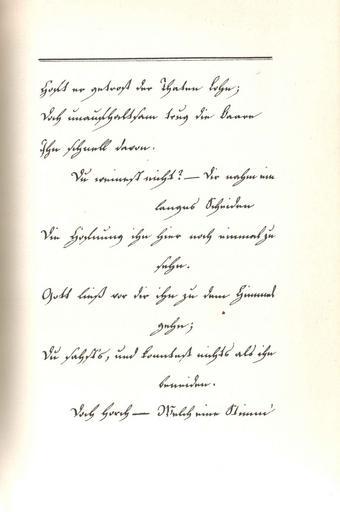 Hofft er getrost der Thaten Lohn;
Doch unaufhaltsam trug die Baare
Ihn schnell davon.
Du weinest nicht? — Dir nahm ein
langes Scheiden
Die Hoffnung ihn hier noch einmal zu
sehn.
Gott ließ vor dir ihn zu dem Himmel
gehn;
Du sahst's, und konntest nichts als ihn
beneiden.
Doch horch — Welch eine Stimm'